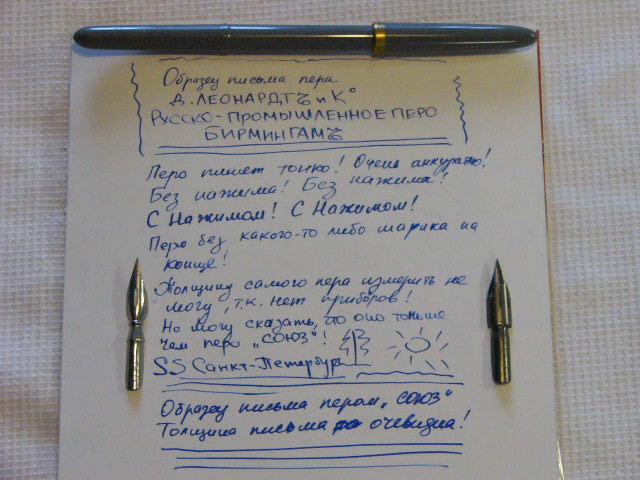 Образец письма пера
Д. ЛЕОНАРДТЪ и К°
РУССКО-ПРОМЫШЛЕННОЕ ПЕРО
БИРМИНГАМЪ
Перо пишет тонко! Очень аккуратно!
Без нажима! Без нажима!
С Нажимом! С Нажимом!
Перо без какого-то либо шарика на
конце!
Толщину самого пера измерить не
могу, т.к. нет приборов!
Но могу сказать, что оно тоньше
чем перо „СОЮЗ"!
SS Санкт-Петербург
Образец письма пером „СОЮЗ"
Толщина письма очевидна!